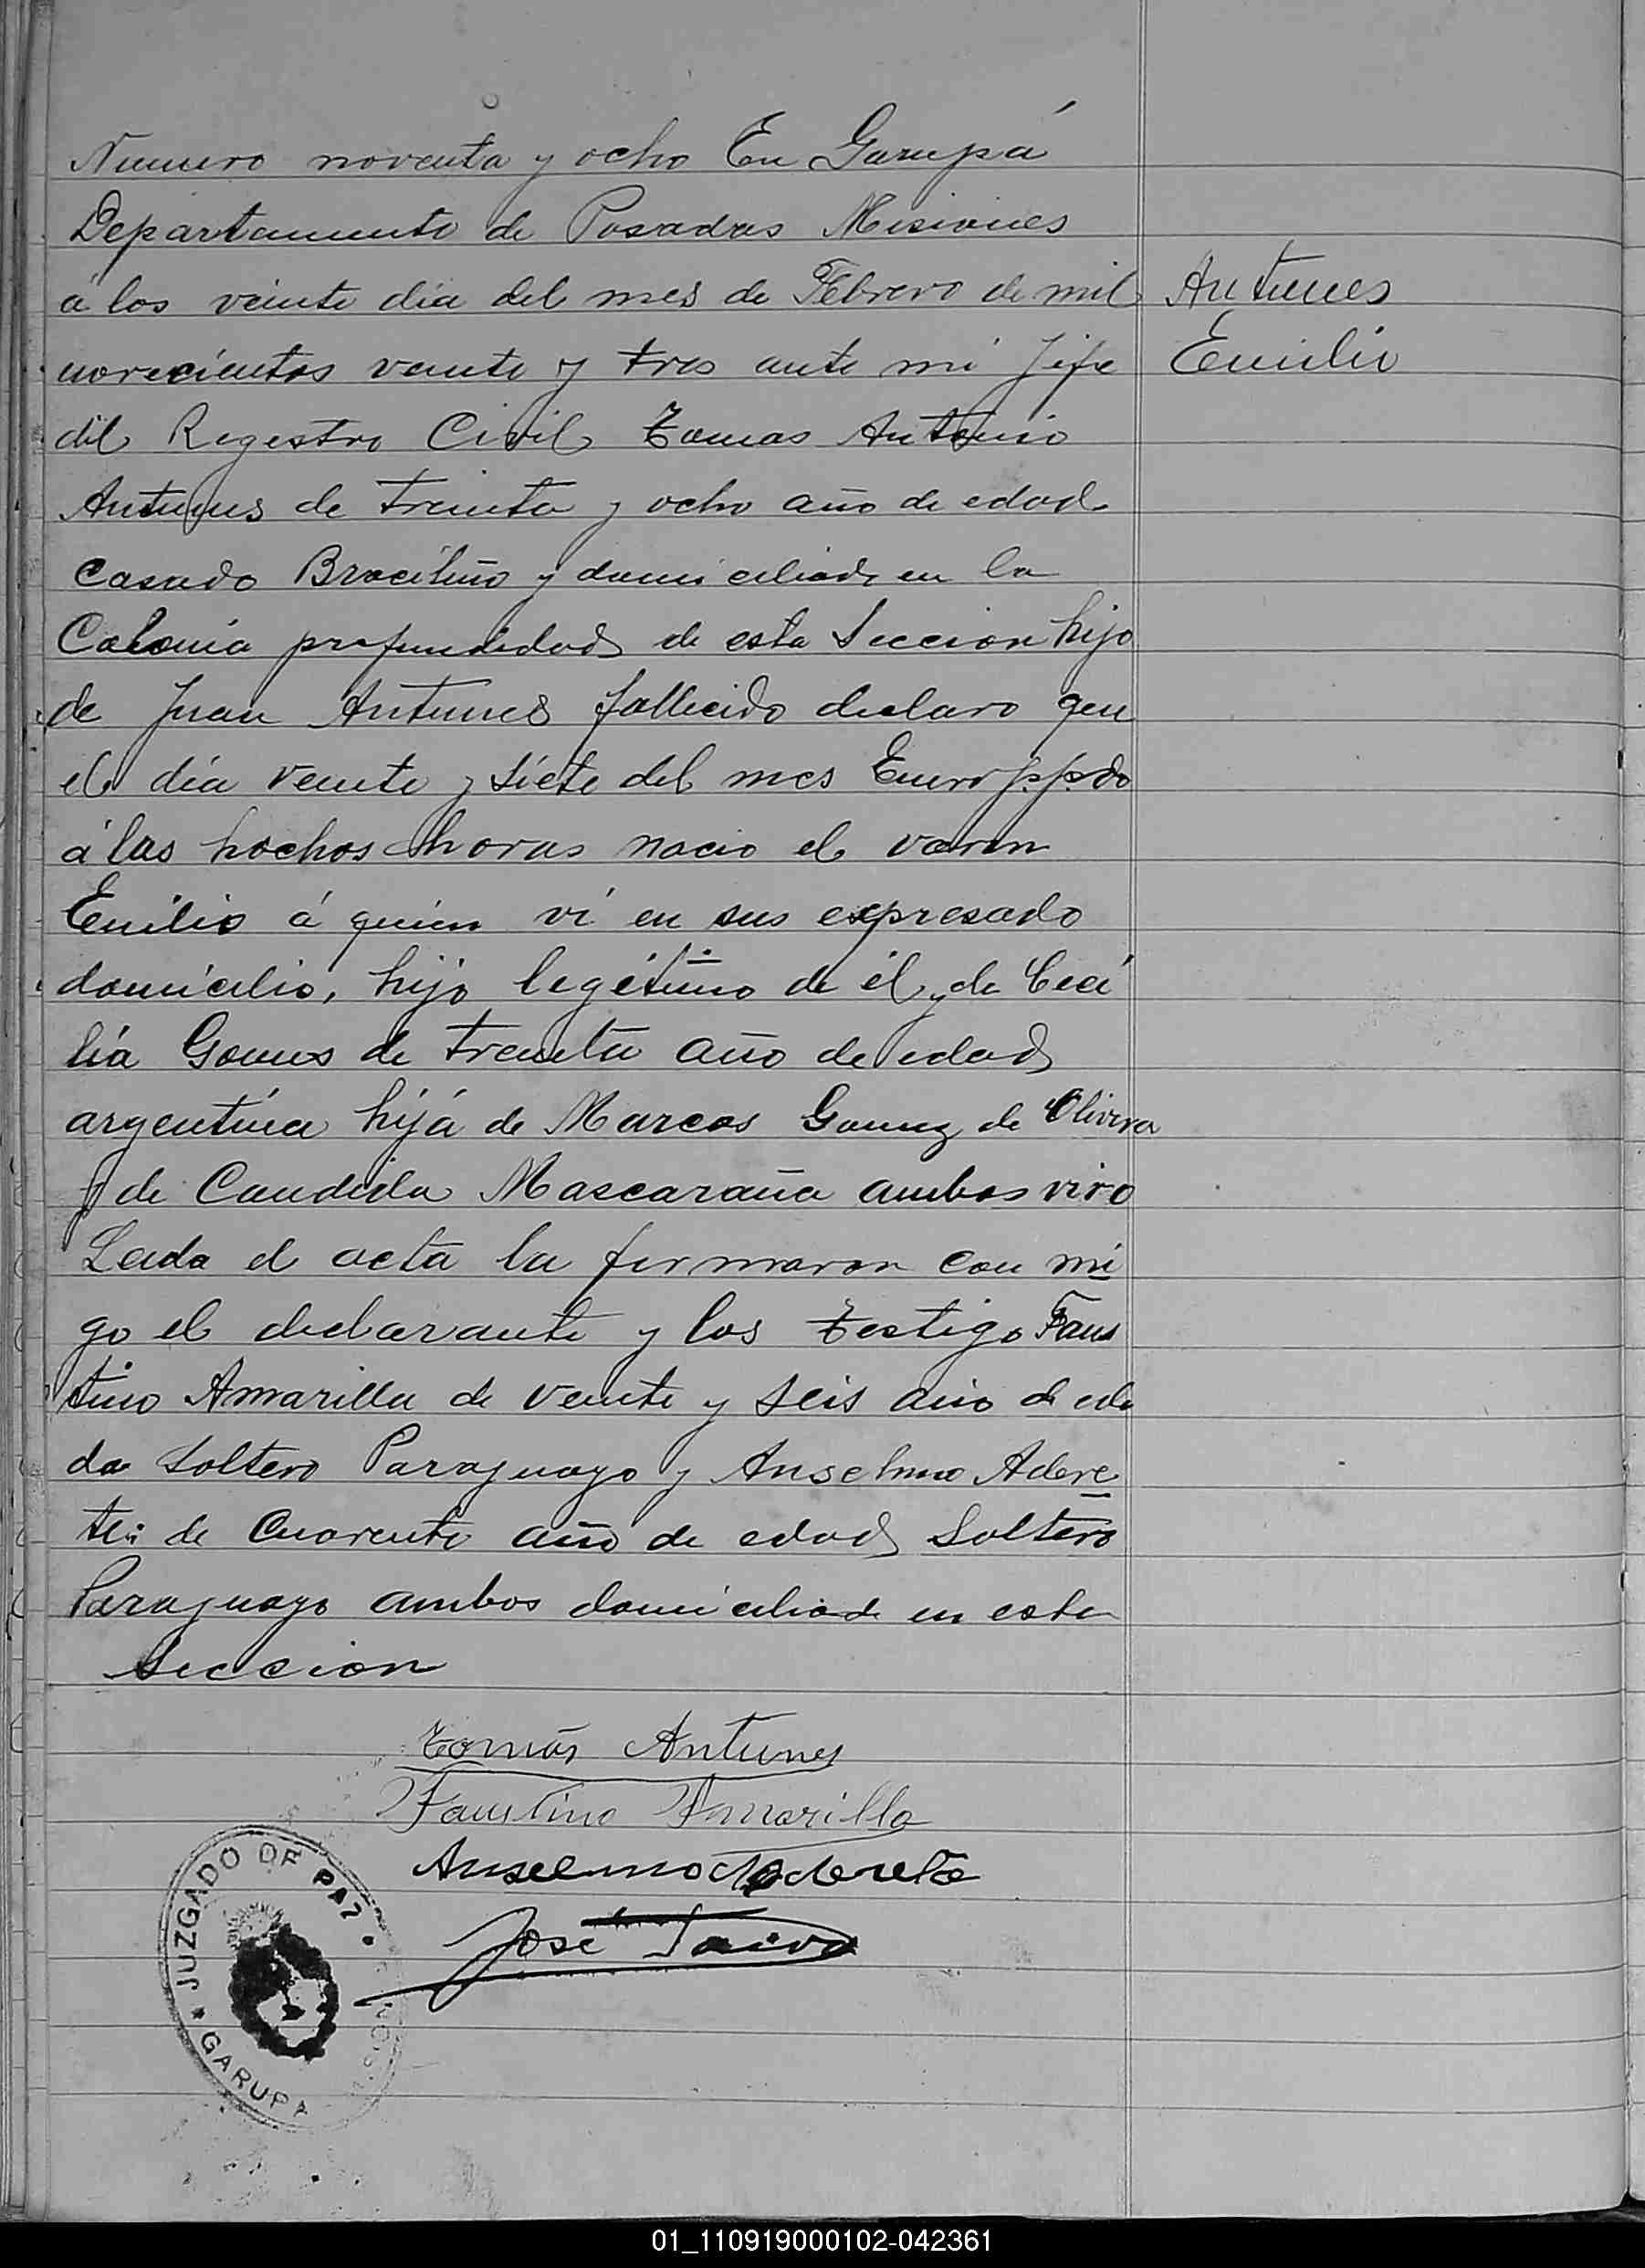 Numero noventa y ocho En Garupá
Departamento de Posadas Misiones
á los veinte dia del mes de Febrero de mil
novecientos veinte y tres ante mi Jefe
del Registro Civil Tomas Antonio
Antunes de treinta y ocho año de edad
casado Braciliño y domiciliado en la
Colonia profundidad de esta Seccion hijo
de Juan Antunes fallecido declaro que
el dia veinte y siete del mes Enero p.pdo
á las hochos horas nacio el varon
Emilio á quien ví en sus expresado
domicilio, hijo legitimo de él y de Ceci
lia Gomes de treinta año de edad
argentina hija de Marcos Gomez de Olivera
y de Candida Mascaraña ambos vivo
Leida el acta la firmaron con mi
go el declarante y los testigo Faus
tino Amarilla de veinte y seis año de eda
da soltero Paraguayo y Anselmo Adere
te: de Cuarenta año de edad Soltero
Paraguayo ambos domiciliado en esta
seccion
Antunes
Emilio
Tomás Antunes
Faustino Amarilla
Anselmo Aderete
José
JUZGADO DE PAZ
GARUPA
01_110919000102-042361